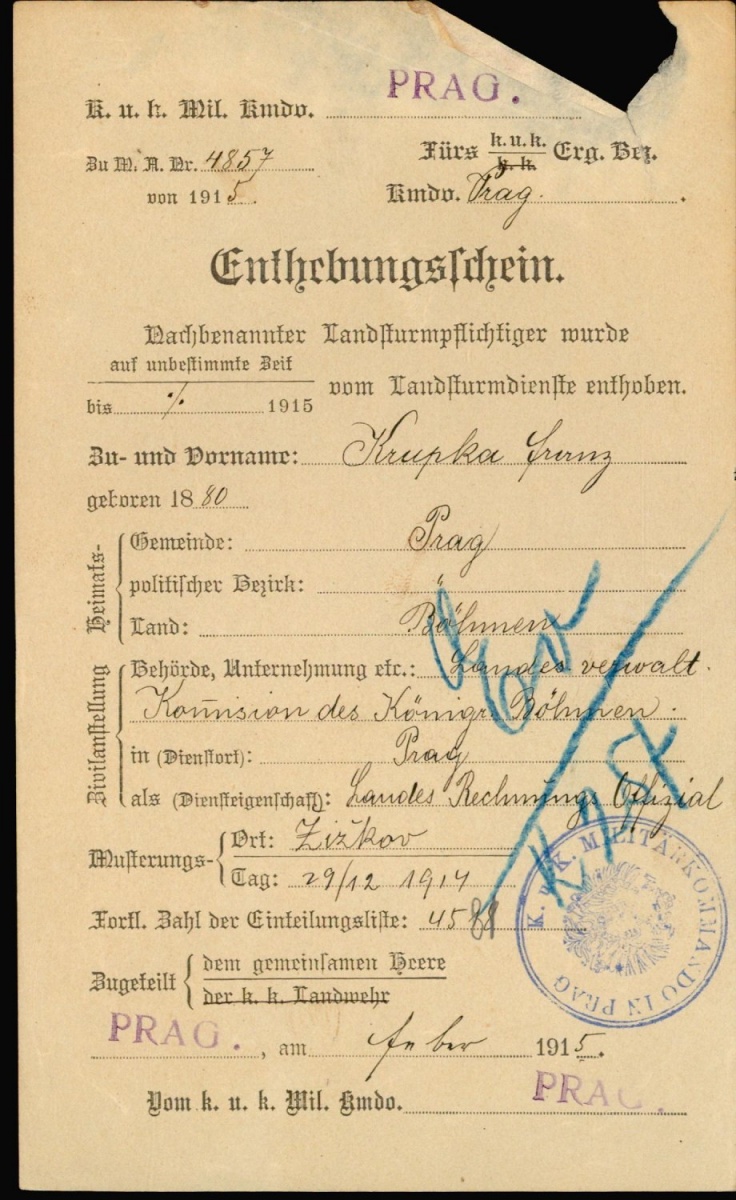 PRAG.
K. u. k. Mil. Kmdo.
Zu M. A. Nr. 4857
von 1915.
Fürs k.u.k. k. k. Erg. Bez.
Kmdo. Prag.
Enthebungsschein.
Nachbenannter Landsturmpflichtiger wurde
auf unbestimmte Zeit
bis ./. 1915
vom Landsturmdienste enthoben.
Zu- und Vorname: Krupka Franz
geboren 1880
Heimats-
Gemeinde: Prag
politischer Bezirk: "
Land: Böhmen
Zivilanstellung
Behörde, Unternehmung etc.: Landes verwalt.
Kom̅ision des Königr. Böhmen.
in (Dienstort): Prag
als (Diensteigenschaft): Landes Rechnungs Offizial
Musterungs-
Ort: Žižkov
Tag: 29/12 1914
Fortl. Zahl der Einteilungsliste: 4588
Zugeteilt
dem gemeinsamen Heere
der k. k. Landwehr
K. u. K. MILITÄRKOMMANDO IN PRAG
PRAG., am feber 1915.
Vom k. u. k. Mil. Kmdo. PRAG.